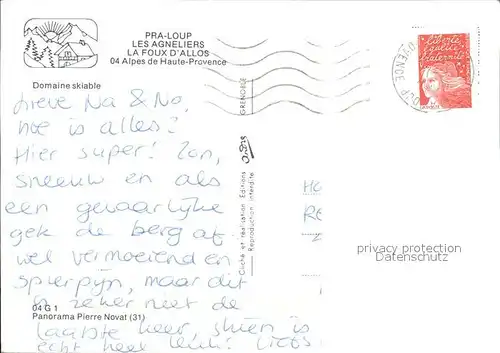 PRA-LOUP
LES AGNELIERS
LA FOUX D'ALLOS
04 Alpes de Haute-Provence
Domaine skiable
Lieve Na & No,
hoe is alles?
Hier super! Zon,
sneeuw en als
een gevaarlijke
gek de berg af.
wel vermoeiend en
spierpijn, maar dit
is zeker niet de
laatste keer, skiën is
echt heel leuk! Liefs
04 G 1
Panorama Pierre Novat (31)
GRENOBLE
Cliché et réalisation Editions
Reproduction interdite
liberté
égalité
fraternité
LOUP
HO
RE
2
privacy protection
Datenschutz